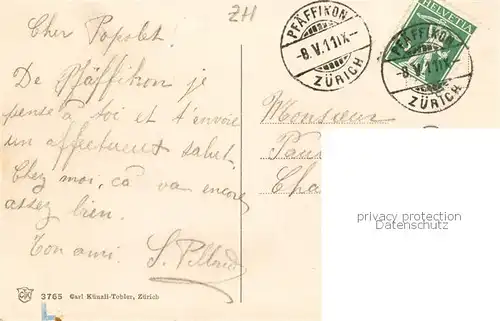 ZH
Cher Popolet
De Pfäffikon je
pense à toi et t'envoie
un affectueux salut.
Chez moi, ça va encore
assez bien.
Ton ami. S.
PFÄFFIKON
-8.V.11X-
ZÜRICH
HELVETIA
PFÄFFIKON
-8.V.11X-
ZÜRICH
Monsieur
Cha
privacy protection
Datenschutz
3765 Carl Künzli-Tobler, Zürich